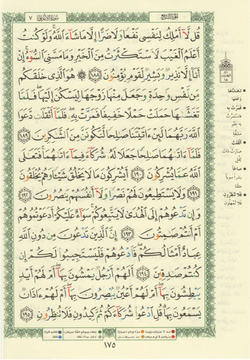 قُل لَّآ أَمْلِكُ لِنَفْسِى نَفْعًا وَلَا ضَرًّا إِلَّا مَا شَآءَ ٱللَّهُ وَلَوْ كُنتُ
أَعْلَمُ ٱلْغَيْبَ لَٱسْتَكْثَرْتُ مِنَ ٱلْخَيْرِ وَمَا مَسَّنِىَ ٱلسُّوٓءُ إِنْ
أَنَا۠ إِلَّا نَذِيرٌ وَبَشِيرٌ لِّقَوْمٍ يُؤْمِنُونَ ﴿١٨٨﴾ هُوَ ٱلَّذِى خَلَقَكُم
مِّن نَّفْسٍ وَٰحِدَةٍ وَجَعَلَ مِنْهَا زَوْجَهَا لِيَسْكُنَ إِلَيْهَا فَلَمَّا تَغَشَّىٰهَا
حَمَلَتْ حَمْلًا خَفِيفًا فَمَرَّتْ بِهِۦ فَلَمَّآ أَثْقَلَت دَّعَوَا
ٱللَّهَ رَبَّهُمَا لَئِنْ ءَاتَيْتَنَا صَٰلِحًا لَّنَكُونَنَّ مِنَ ٱلشَّٰكِرِينَ ﴿١٨٩﴾
فَلَمَّآ ءَاتَىٰهُمَا صَٰلِحًا جَعَلَا لَهُۥ شُرَكَآءَ فِيمَآ ءَاتَىٰهُمَا فَتَعَٰلَى
ٱللَّهُ عَمَّا يُشْرِكُونَ ﴿١٩٠﴾ أَيُشْرِكُونَ مَا لَا يَخْلُقُ شَيْـًٔا وَهُمْ يُخْلَقُونَ
﴿١٩١﴾ وَلَا يَسْتَطِيعُونَ لَهُمْ نَصْرًا وَلَآ أَنفُسَهُمْ يَنصُرُونَ ﴿١٩٢﴾
وَإِن تَدْعُوهُمْ إِلَى ٱلْهُدَىٰ لَا يَتَّبِعُوكُمْ سَوَآءٌ عَلَيْكُمْ أَدَعَوْتُمُوهُمْ
أَمْ أَنتُمْ صَٰمِتُونَ ﴿١٩٣﴾ إِنَّ ٱلَّذِينَ تَدْعُونَ مِن دُونِ ٱللَّهِ
عِبَادٌ أَمْثَالُكُمْ فَٱدْعُوهُمْ فَلْيَسْتَجِيبُوا۟ لَكُمْ إِن
كُنتُمْ صَٰدِقِينَ ﴿١٩٤﴾ أَلَهُمْ أَرْجُلٌ يَمْشُونَ بِهَآ أَمْ لَهُمْ أَيْدٍ
يَبْطِشُونَ بِهَآ أَمْ لَهُمْ أَعْيُنٌ يُبْصِرُونَ بِهَآ أَمْ لَهُمْ ءَاذَانٌ
يَسْمَعُونَ بِهَا قُلِ ٱدْعُوا۟ شُرَكَآءَكُمْ ثُمَّ كِيدُونِ فَلَا تُنظِرُونِ ﴿١٩٥﴾
١٧٥